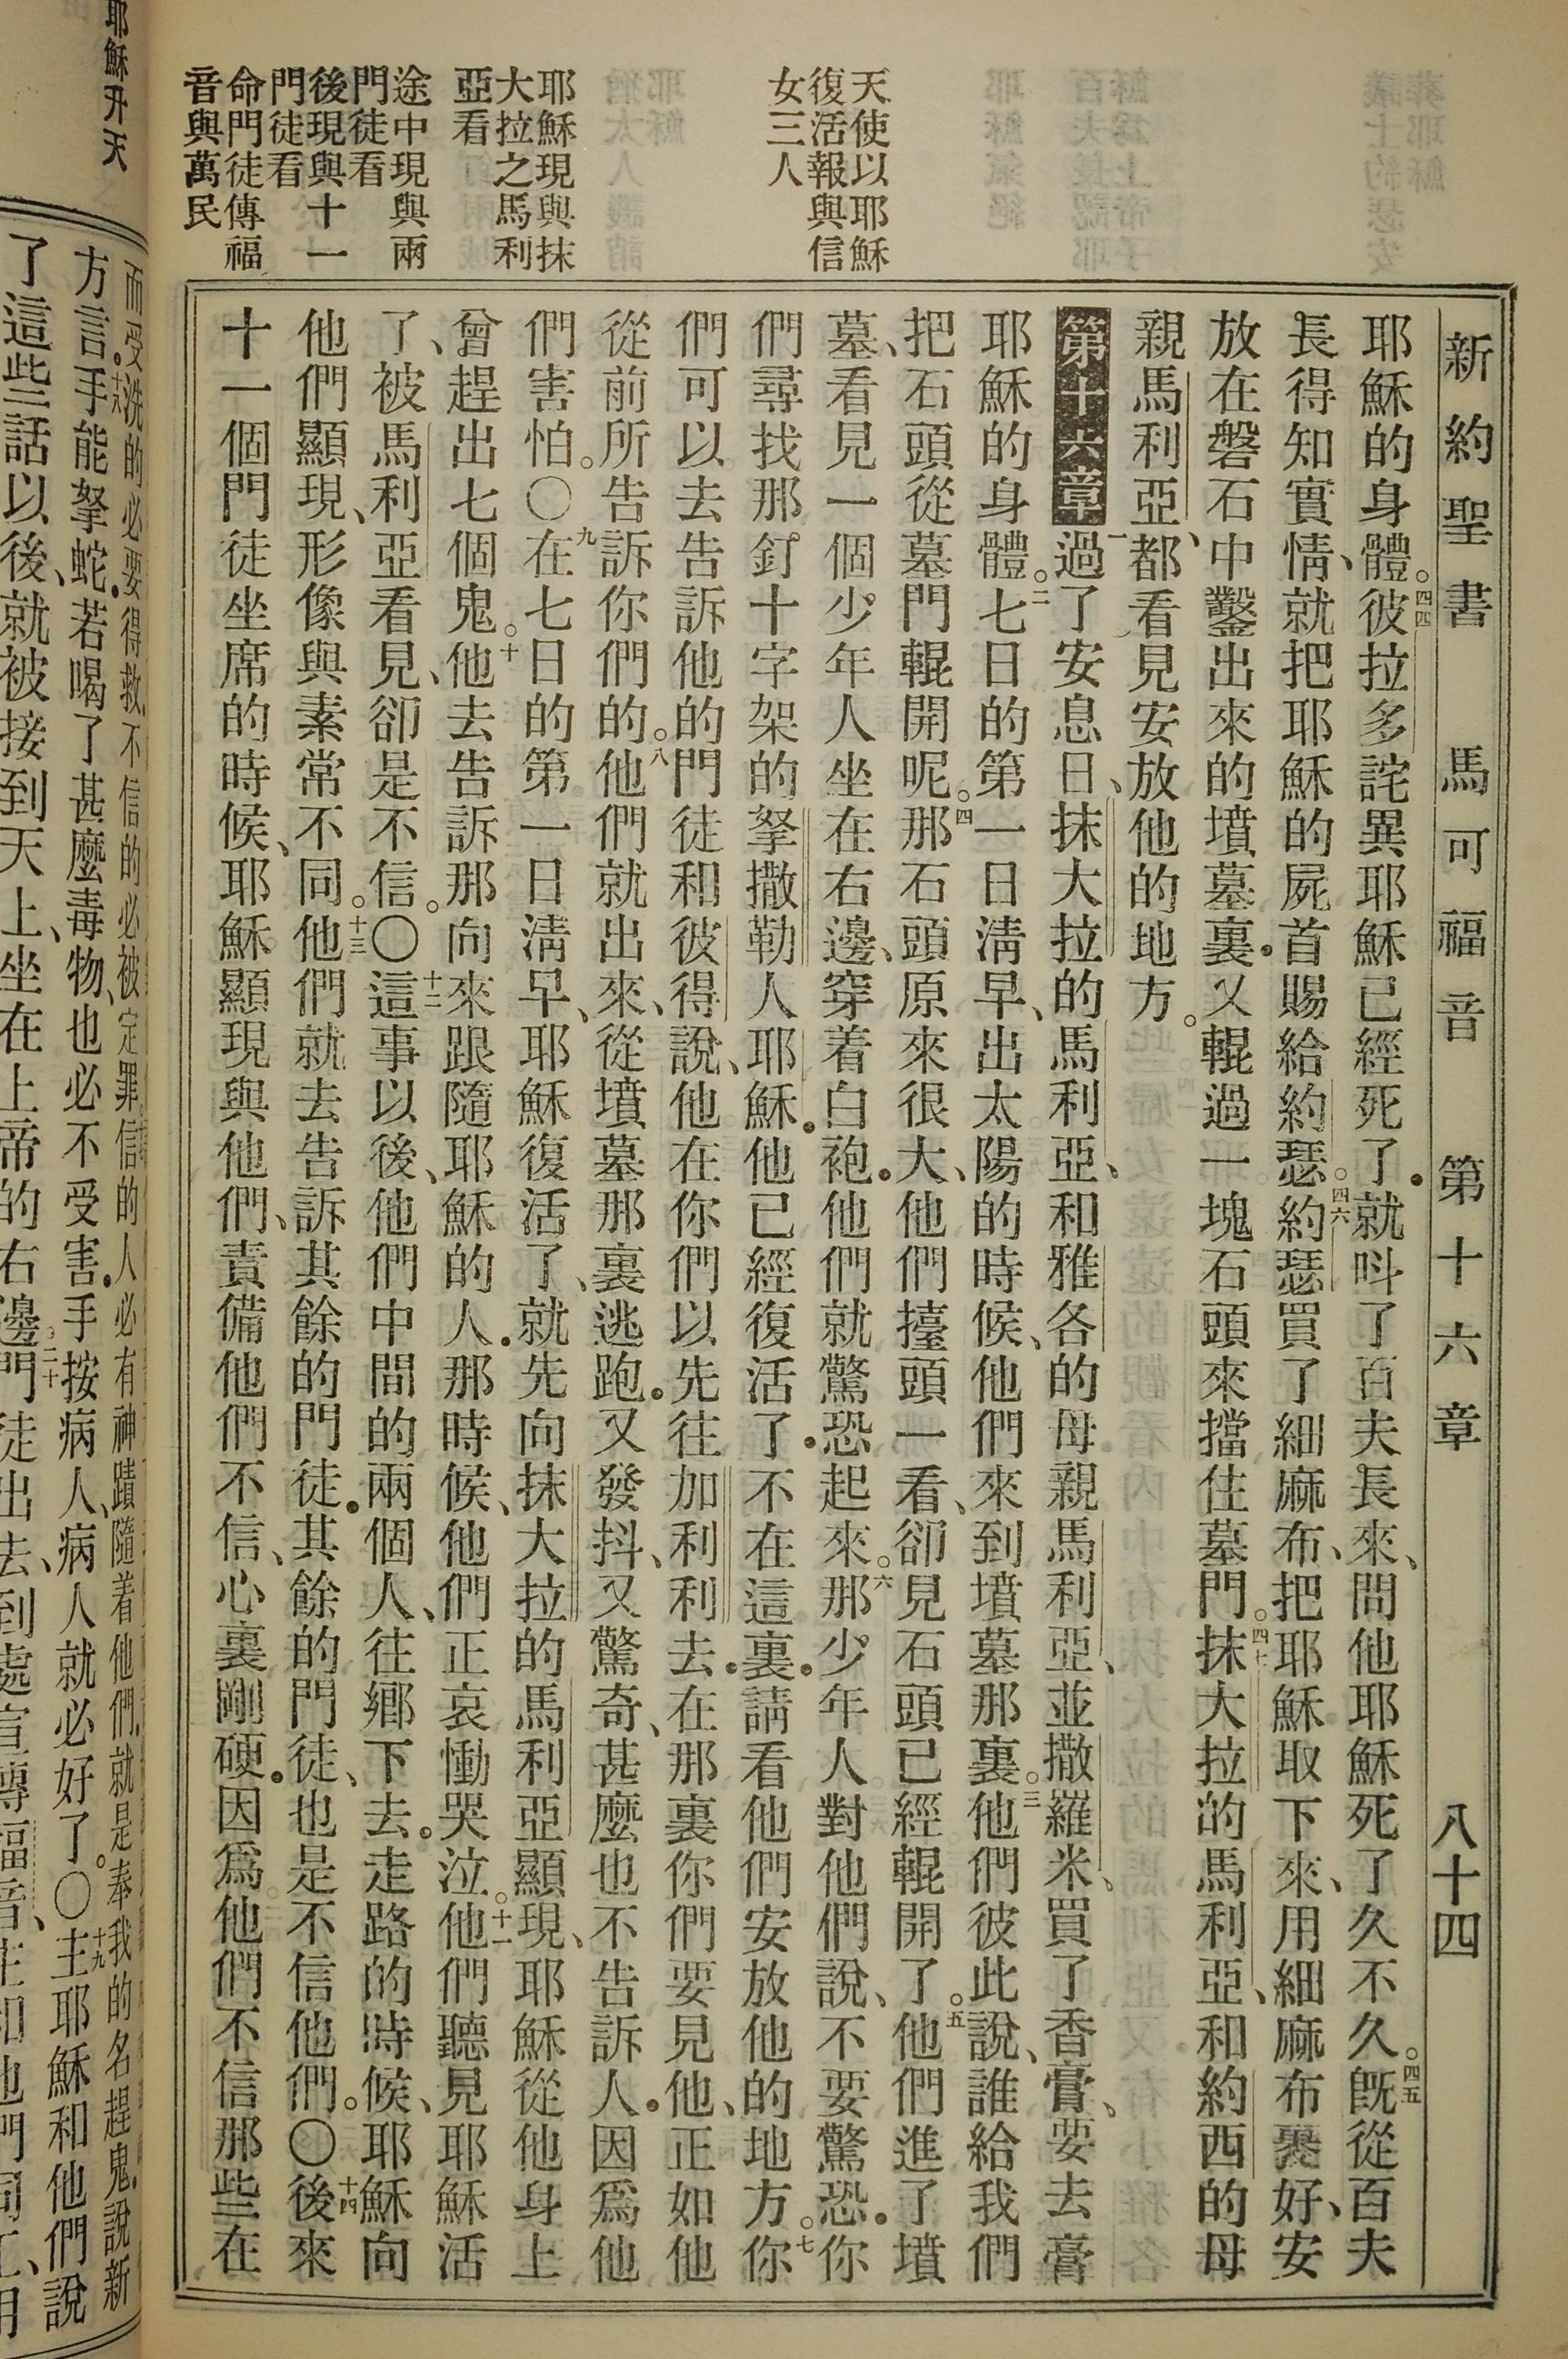 新約聖書 馬可福音 第十六章 八十四
天使以耶穌
復活報與信
女三人
耶穌現與抹
大拉之馬利
亞看
途中現與兩
門徒看
後現與十一
門徒看
命門徒傳福
音與萬民
耶穌的身體。四四彼拉多詫異耶穌已經死了.就呌了百夫長來、問他耶穌死了久不久。四五旣從百夫
長得知實情、就把耶穌的屍首賜給約瑟。四六約瑟買了細麻布、把耶穌取下來、用細麻布裹好、安
放在磐石中鑿出來的墳墓裏.又輥過一塊石頭來擋住墓門。四七抹大拉的馬利亞、和約西的母
親馬利亞、都看見安放他的地方。
第十六章 一過了安息日、抹大拉的馬利亞、和雅各的母親馬利亞、並撒羅米、買了香膏、要去膏
耶穌的身體。二七日的第一日淸早、出太陽的時候、他們來到墳墓那裏。三他們彼此說、誰給我們
把石頭從墓門輥開呢。四那石頭原來很大、他們擡頭一看、卻見石頭已經輥開了。五他們進了墳
墓、看見一個少年人坐在右邊、穿着白袍.他們就驚恐起來。六那少年人對他們說、不要驚恐.你
們尋找那釘十字架的拏撒勒人耶穌.他已經復活了.不在這裏.請看他們安放他的地方。七你
們可以去告訴他的門徒和彼得說、他在你們以先往加利利去.在那裏你們要見他、正如他
從前所告訴你們的。八他們就出來、從墳墓那裏逃跑.又發抖、又驚奇、甚麼也不告訴人.因爲他
們害怕。〇九在七日的第一日淸早、耶穌復活了、就先向抹大拉的馬利亞顯現、耶穌從他身上
曾趕出七個鬼。十他去告訴那向來跟隨耶穌的人.那時候、他們正哀慟哭泣。十一他們聽見耶穌活
了、被馬利亞看見、卻是不信。〇十二這事以後、他們中間的兩個人、往鄉下去.走路的時候、耶穌向
他們顯現、形像與素常不同。十三他們就去告訴其餘的門徒.其餘的門徒、也是不信他們。〇十四後來
十一個門徒坐席的時候、耶穌顯現與他們、責備他們不信、心裏剛硬.因爲他們不信那些在
耶穌升天
而受洗的必要得救.不信的必被定罪.信的人必有神蹟隨着他們.就是奉我的名趕鬼.說新
方言.十八手能拏蛇.若喝了甚麼毒物、也必不受害.手按病人、病人就必好了。〇十九主耶穌和他們說
了這些話以後、就被接到天上、坐在上帝的右邊。二十門徒出去、到處宣傳福音、主和他們同工、用